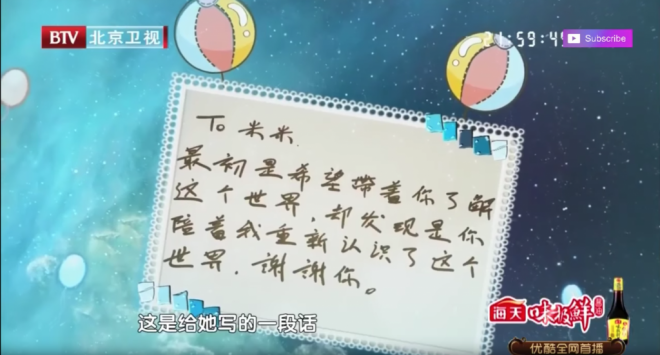 BTV 北京卫视
21:59:4
Subscribe
To 米米
最初是希望帶着你了解
这个世界,却发现是你
陪着我重新认识了这个
世界,謝謝你。
这是给她写的一段话
海天 味极鲜
优酷全网首播